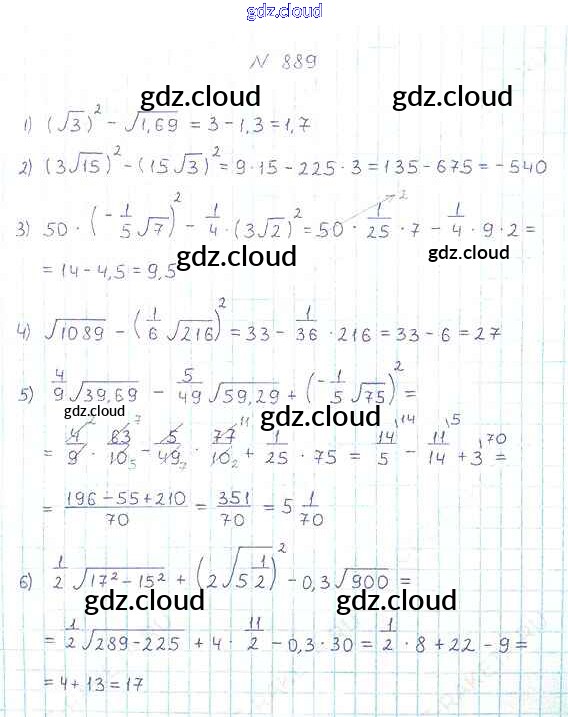 gdz.cloud
N 889
1) (√3)² - √1,69 = 3 - 1,3 = 1,7
gdz.cloud gdz.cloud
2) (3√15)² - (15√3)² = 9·15 - 225·3 = 135 - 675 = -540
3) 50·(-1/5 √7)² - 1/4·(3√2)² = 50·1/25·7 - 1/4·9·2 =
gdz.cloud gdz.cloud
= 14 - 4,5 = 9,5
4) √1089 - (1/6 √216)² = 33 - 1/36·216 = 33 - 6 = 27
5) 4/9 √39,69 - 5/49 √59,29 + (-1/5 √75)² =
gdz.cloud gdz.cloud
= 4/9 · 83/10 - 5/49 · 77/10 + 1/25 · 75 = 14/5 - 11/14 + 3 =
= (196 - 55 + 210)/70 = 351/70 = 5 1/70
gdz.cloud
6) 1/2 √17² - 15² + (2√5 1/2)² - 0,3√900 =
gdz.cloud gdz.cloud
= 1/2 √289 - 225 + 4·11/2 - 0,3·30 = 1/2·8 + 22 - 9 =
= 4 + 13 = 17